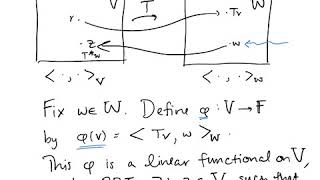 V T W
v Tv
z w
T*w
< · , · >_V < · , · >_W
Fix w ∈ W. Define φ : V → F
by φ(v) = < Tv, w >_W.
This φ is a linear functional on V,